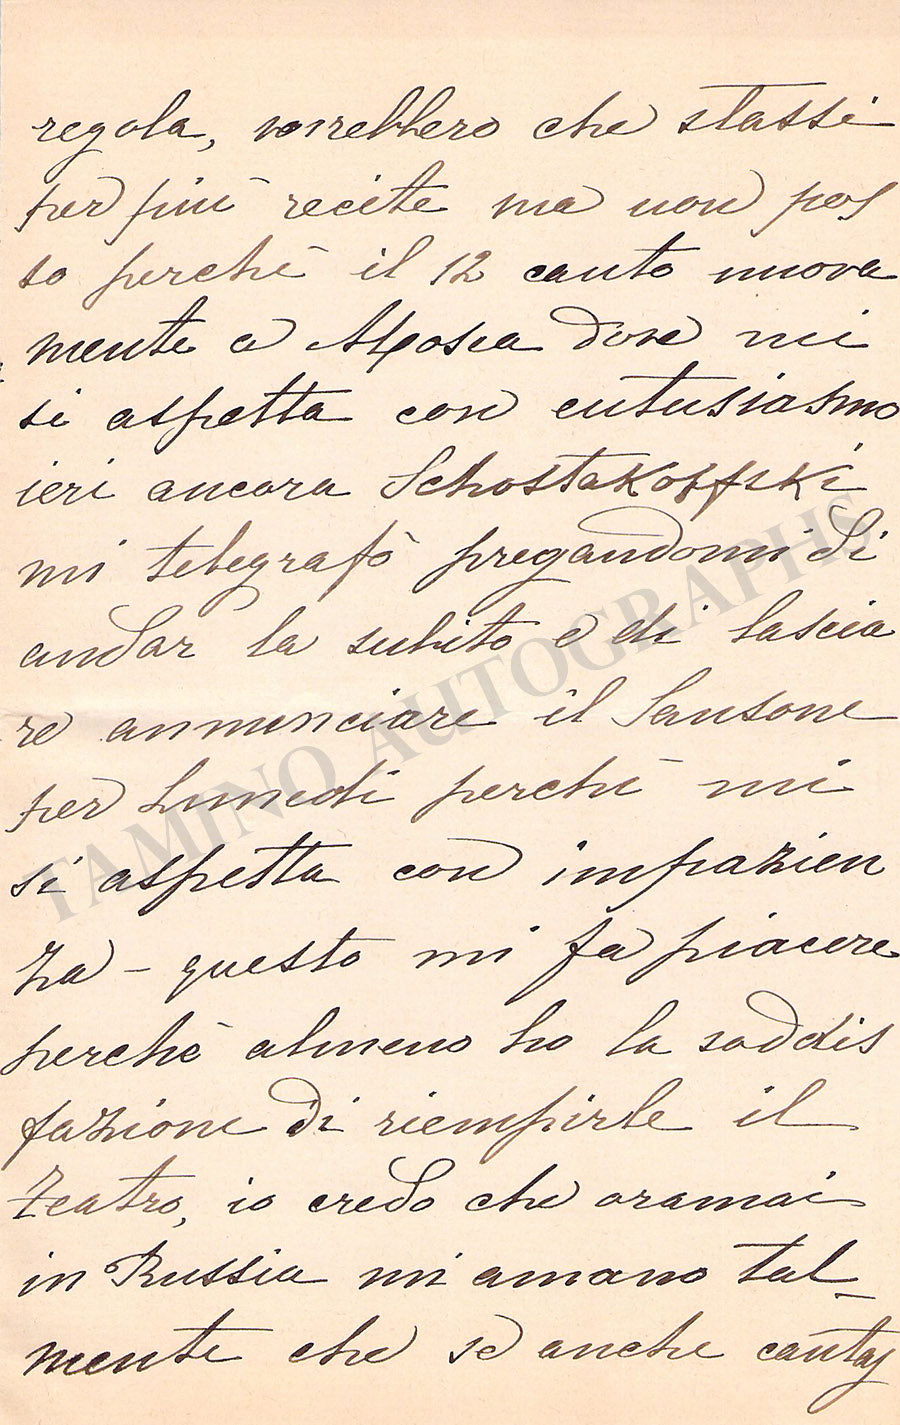 regola, vorrebbero che stassi
per più recite ma non pos
so perchè il 12 canto nuova
mente a Mosca dove mi
si aspetta con entusiasmo
ieri ancora Schostakoffski
mi telegrafò pregandomi di
andar la subito e di lascia
re annunciare il Sansone
per Lunedi perchè mi
si aspetta con impazien
za - questo mi fa piacere
perchè almeno ho la soddis
fazione di riempirle il
Teatro, io credo che oramai
in Russia mi amano tal_
mente che se anche cantas
TAMINO AUTOGRAPHS